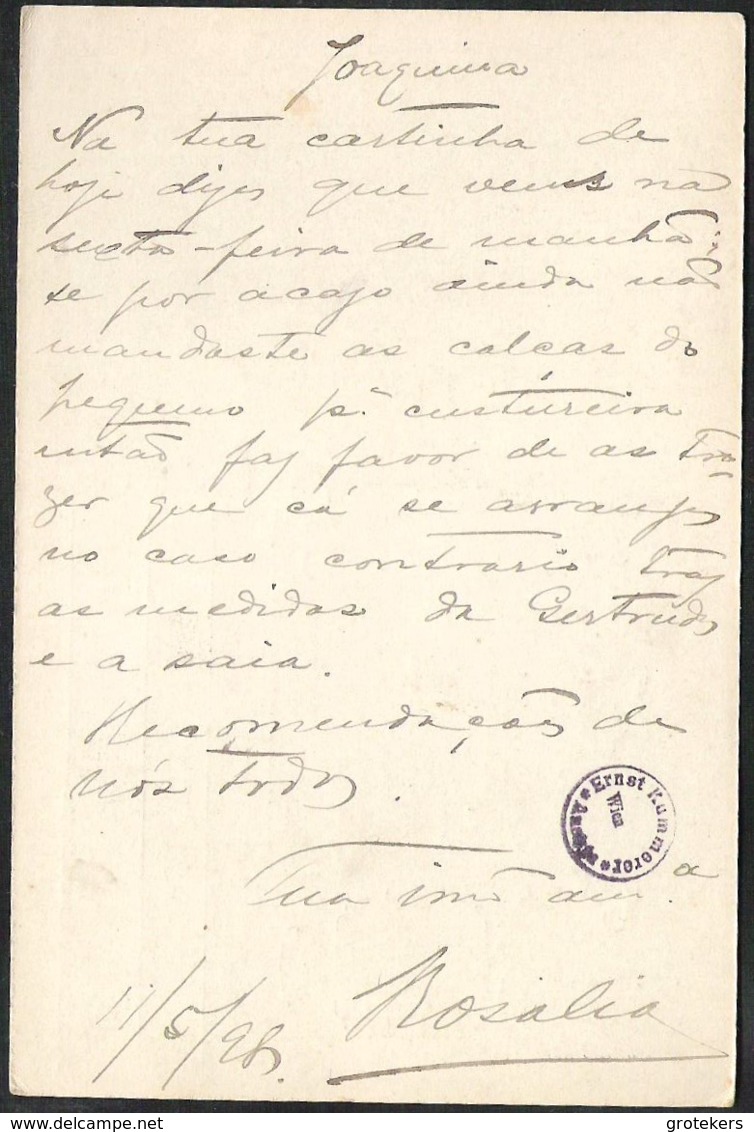 Joaquina
Na tua cartinha de
hoje dizes que vens na
sexta-feira de manhã;
se por acazo ainda não
mandaste as calças do
pequeno pª custureira
então faz favor de as tra-
zer que cá se arranja
no caso contrario traz
as medidas da Gertrudes
e a saia.
Recomendações de
nós todos.
Tua irmã am.ª
Rosalia
11/5/98.
Ernst Kammerer
Wien
grotekers
delcampe.net